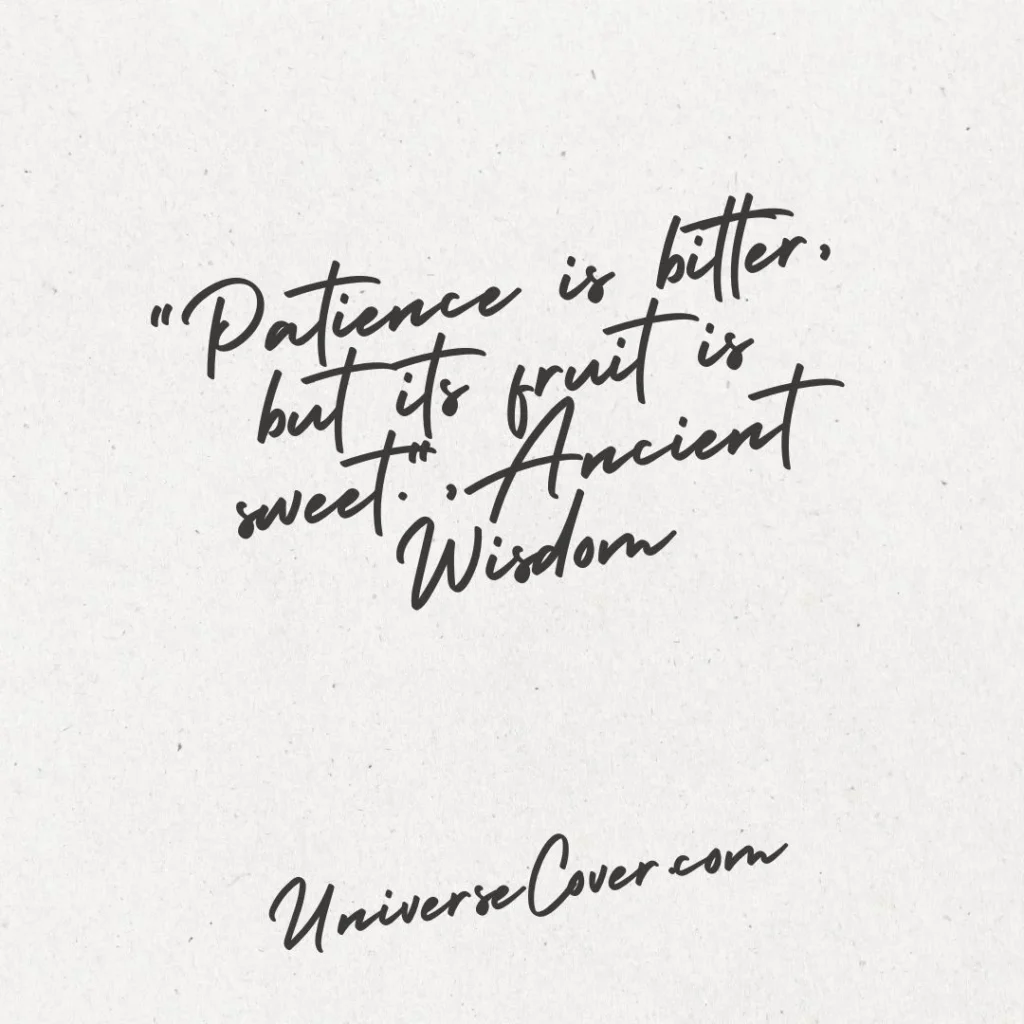 "Patience is bitter,
but its fruit is
sweet." , Ancient
Wisdom
UniverseCover.com